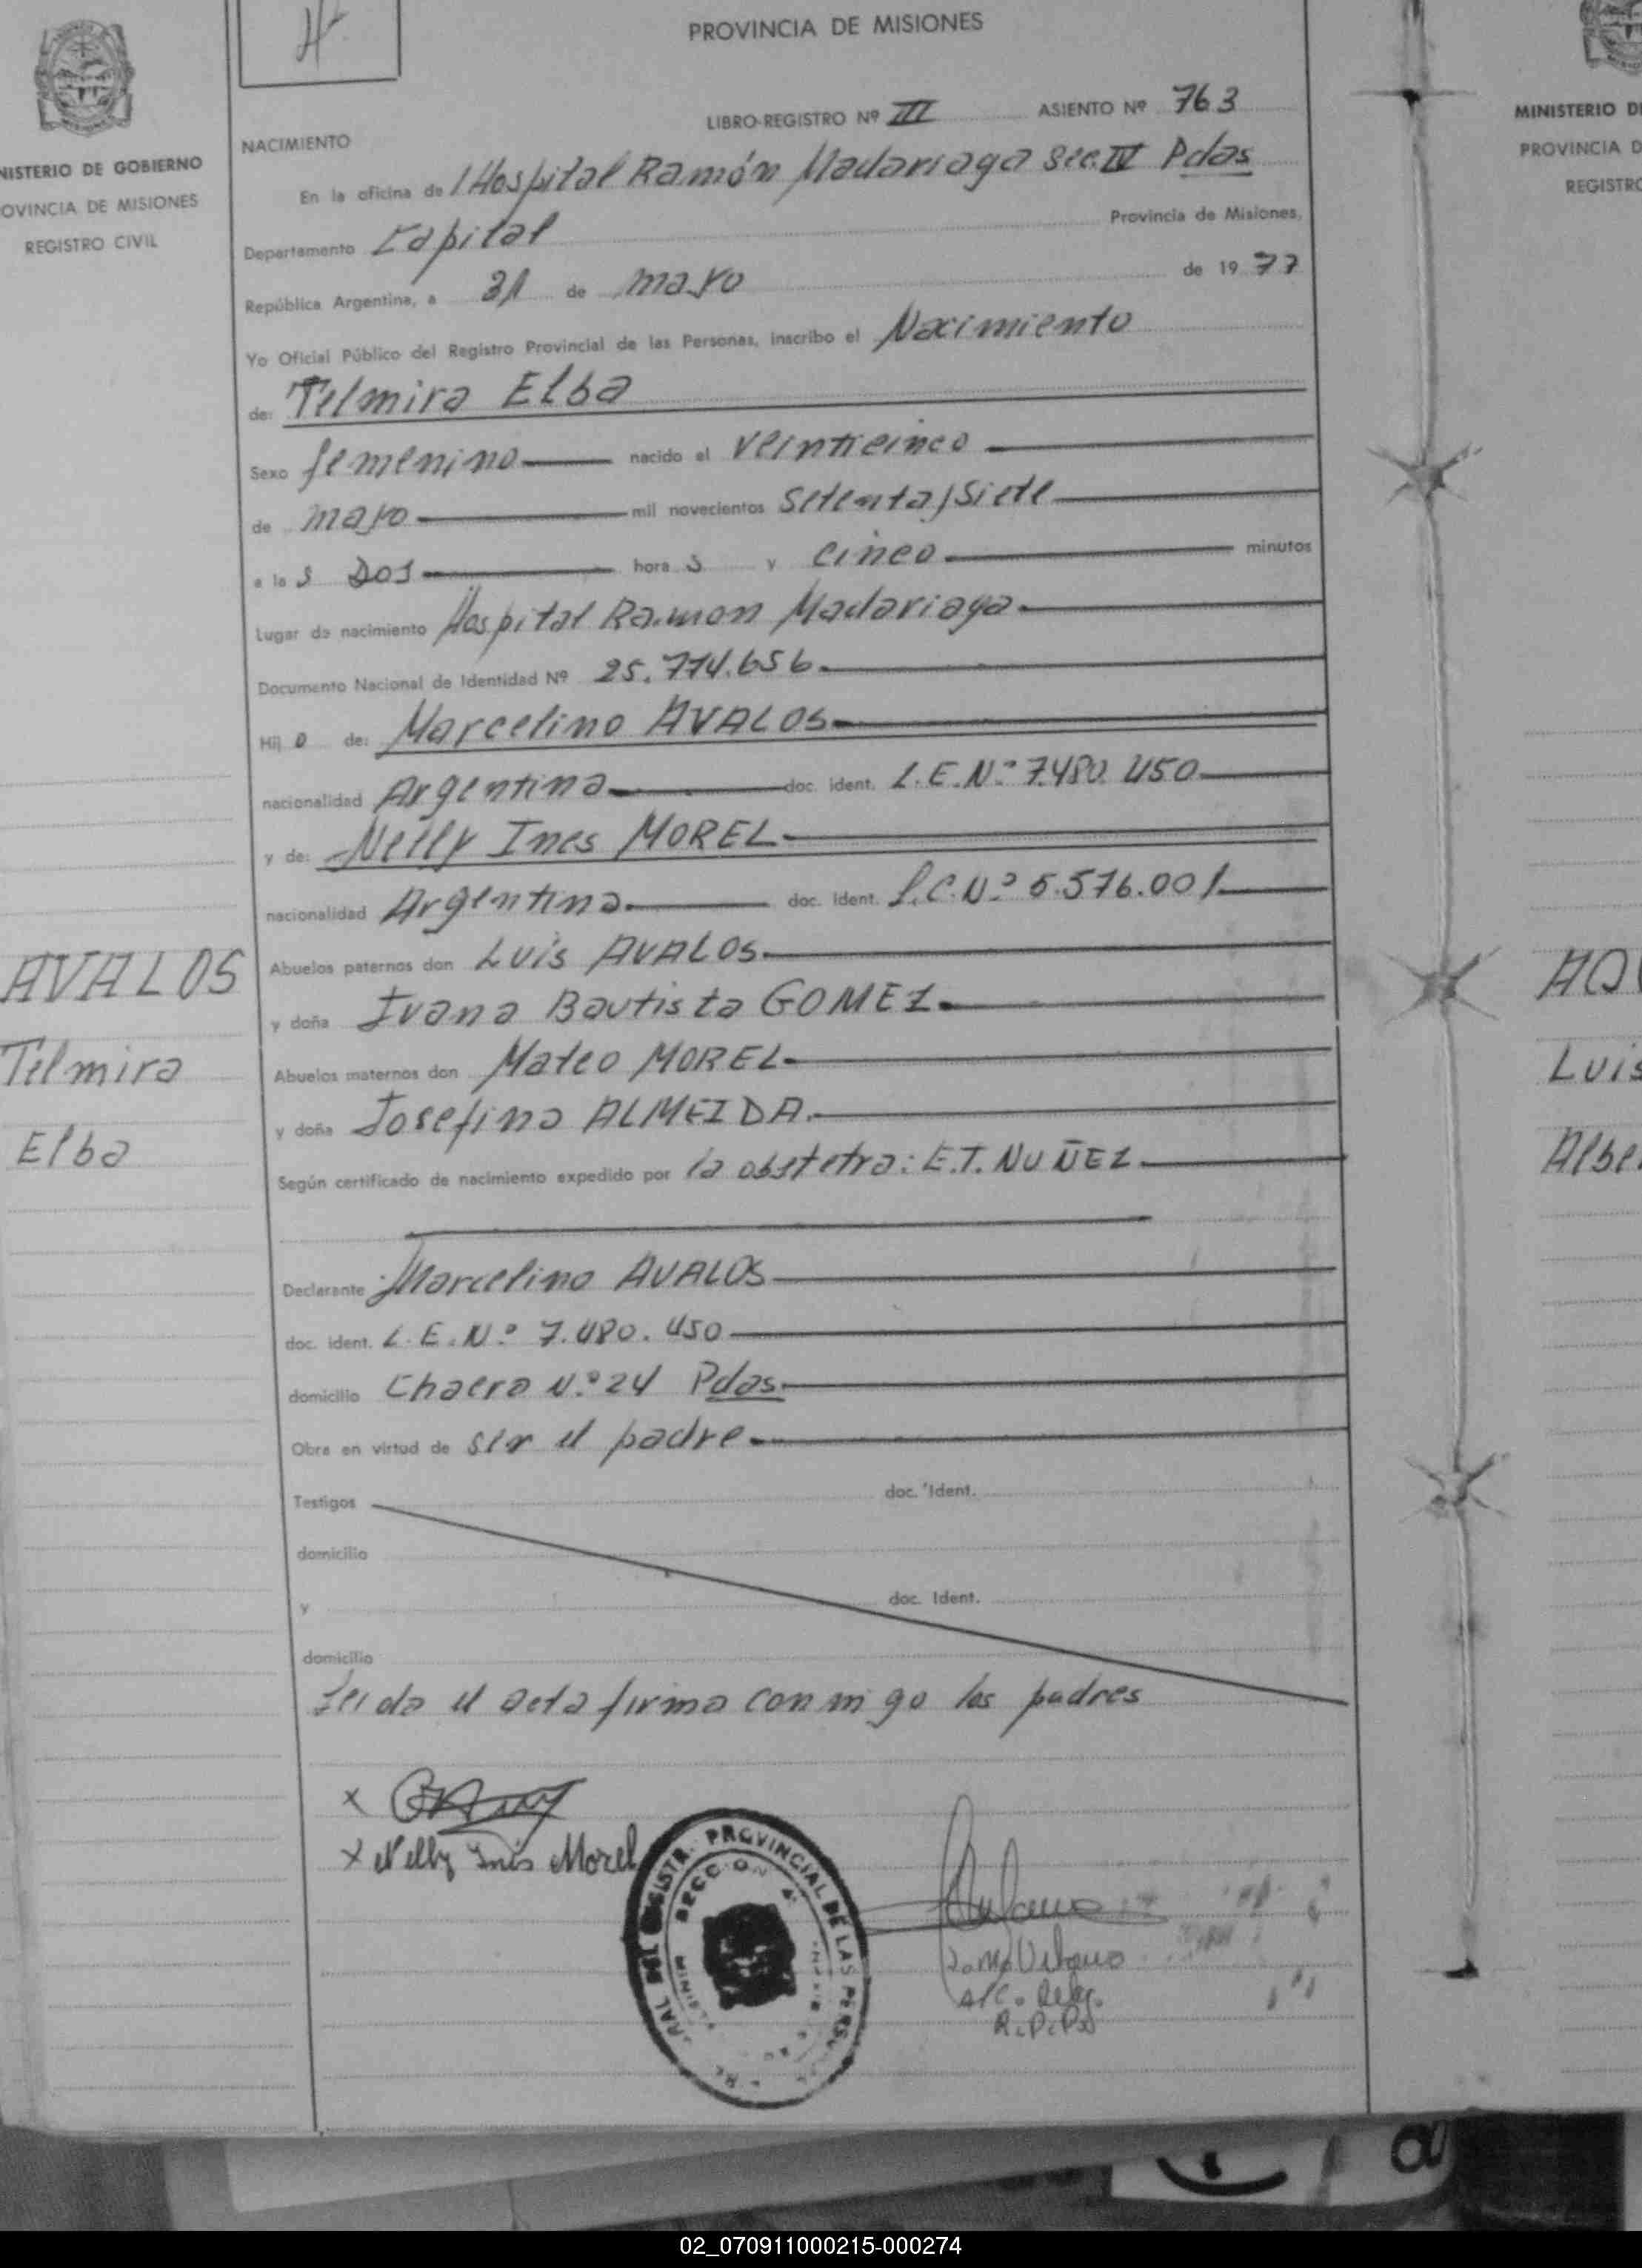 H.
PROVINCIA DE MISIONES
LIBRO-REGISTRO Nº III ASIENTO Nº 763
NACIMIENTO
MINISTERIO DE GOBIERNO
PROVINCIA DE MISIONES
REGISTRO CIVIL
En la oficina de l Hospital Ramón Madariaga Sec. IV Pdas
Departamento Capital Provincia de Misiones,
República Argentina, a 31 de mayo de 1977
Yo Oficial Público del Registro Provincial de las Personas, inscribo el Nacimiento
de: Telmira Elba
Sexo femenino nacido el veinticinco
de mayo mil novecientos Setenta y Siete
a las Dos horas y cinco minutos
Lugar de nacimiento Hospital Ramon Madariaga
Documento Nacional de Identidad Nº 25.774.656
Hijo de: Marcelino AVALOS
nacionalidad Argentina doc. ident. L.E.Nº 7.480.450
y de: Nelly Ines MOREL
nacionalidad Argentina doc. ident. L.C.Nº 5.576.001
Abuelos paternos don Luis AVALOS
y doña Juana Bautista GOMEZ
Abuelos maternos don Mateo MOREL
y doña Josefina ALMEIDA
Según certificado de nacimiento expedido por la obstetra: E.T. NUÑEZ
Declarante Marcelino AVALOS
doc. ident. L.E.Nº 7.480.450
domicilio Chacra Nº 24 Pdas.
Obra en virtud de ser el padre
Testigos doc. Ident.
domicilio
y doc. Ident.
domicilio
Leida el acta firma conmigo los padres
x
x Nelly Inés Morel
REGISTR. PROVINCIAL DE LAS PERS
SECCION 4
R.P.P.
AVALOS
Telmira
Elba
MINISTERIO DE
PROVINCIA D
REGISTRO
Luis
02_070911000215-000274